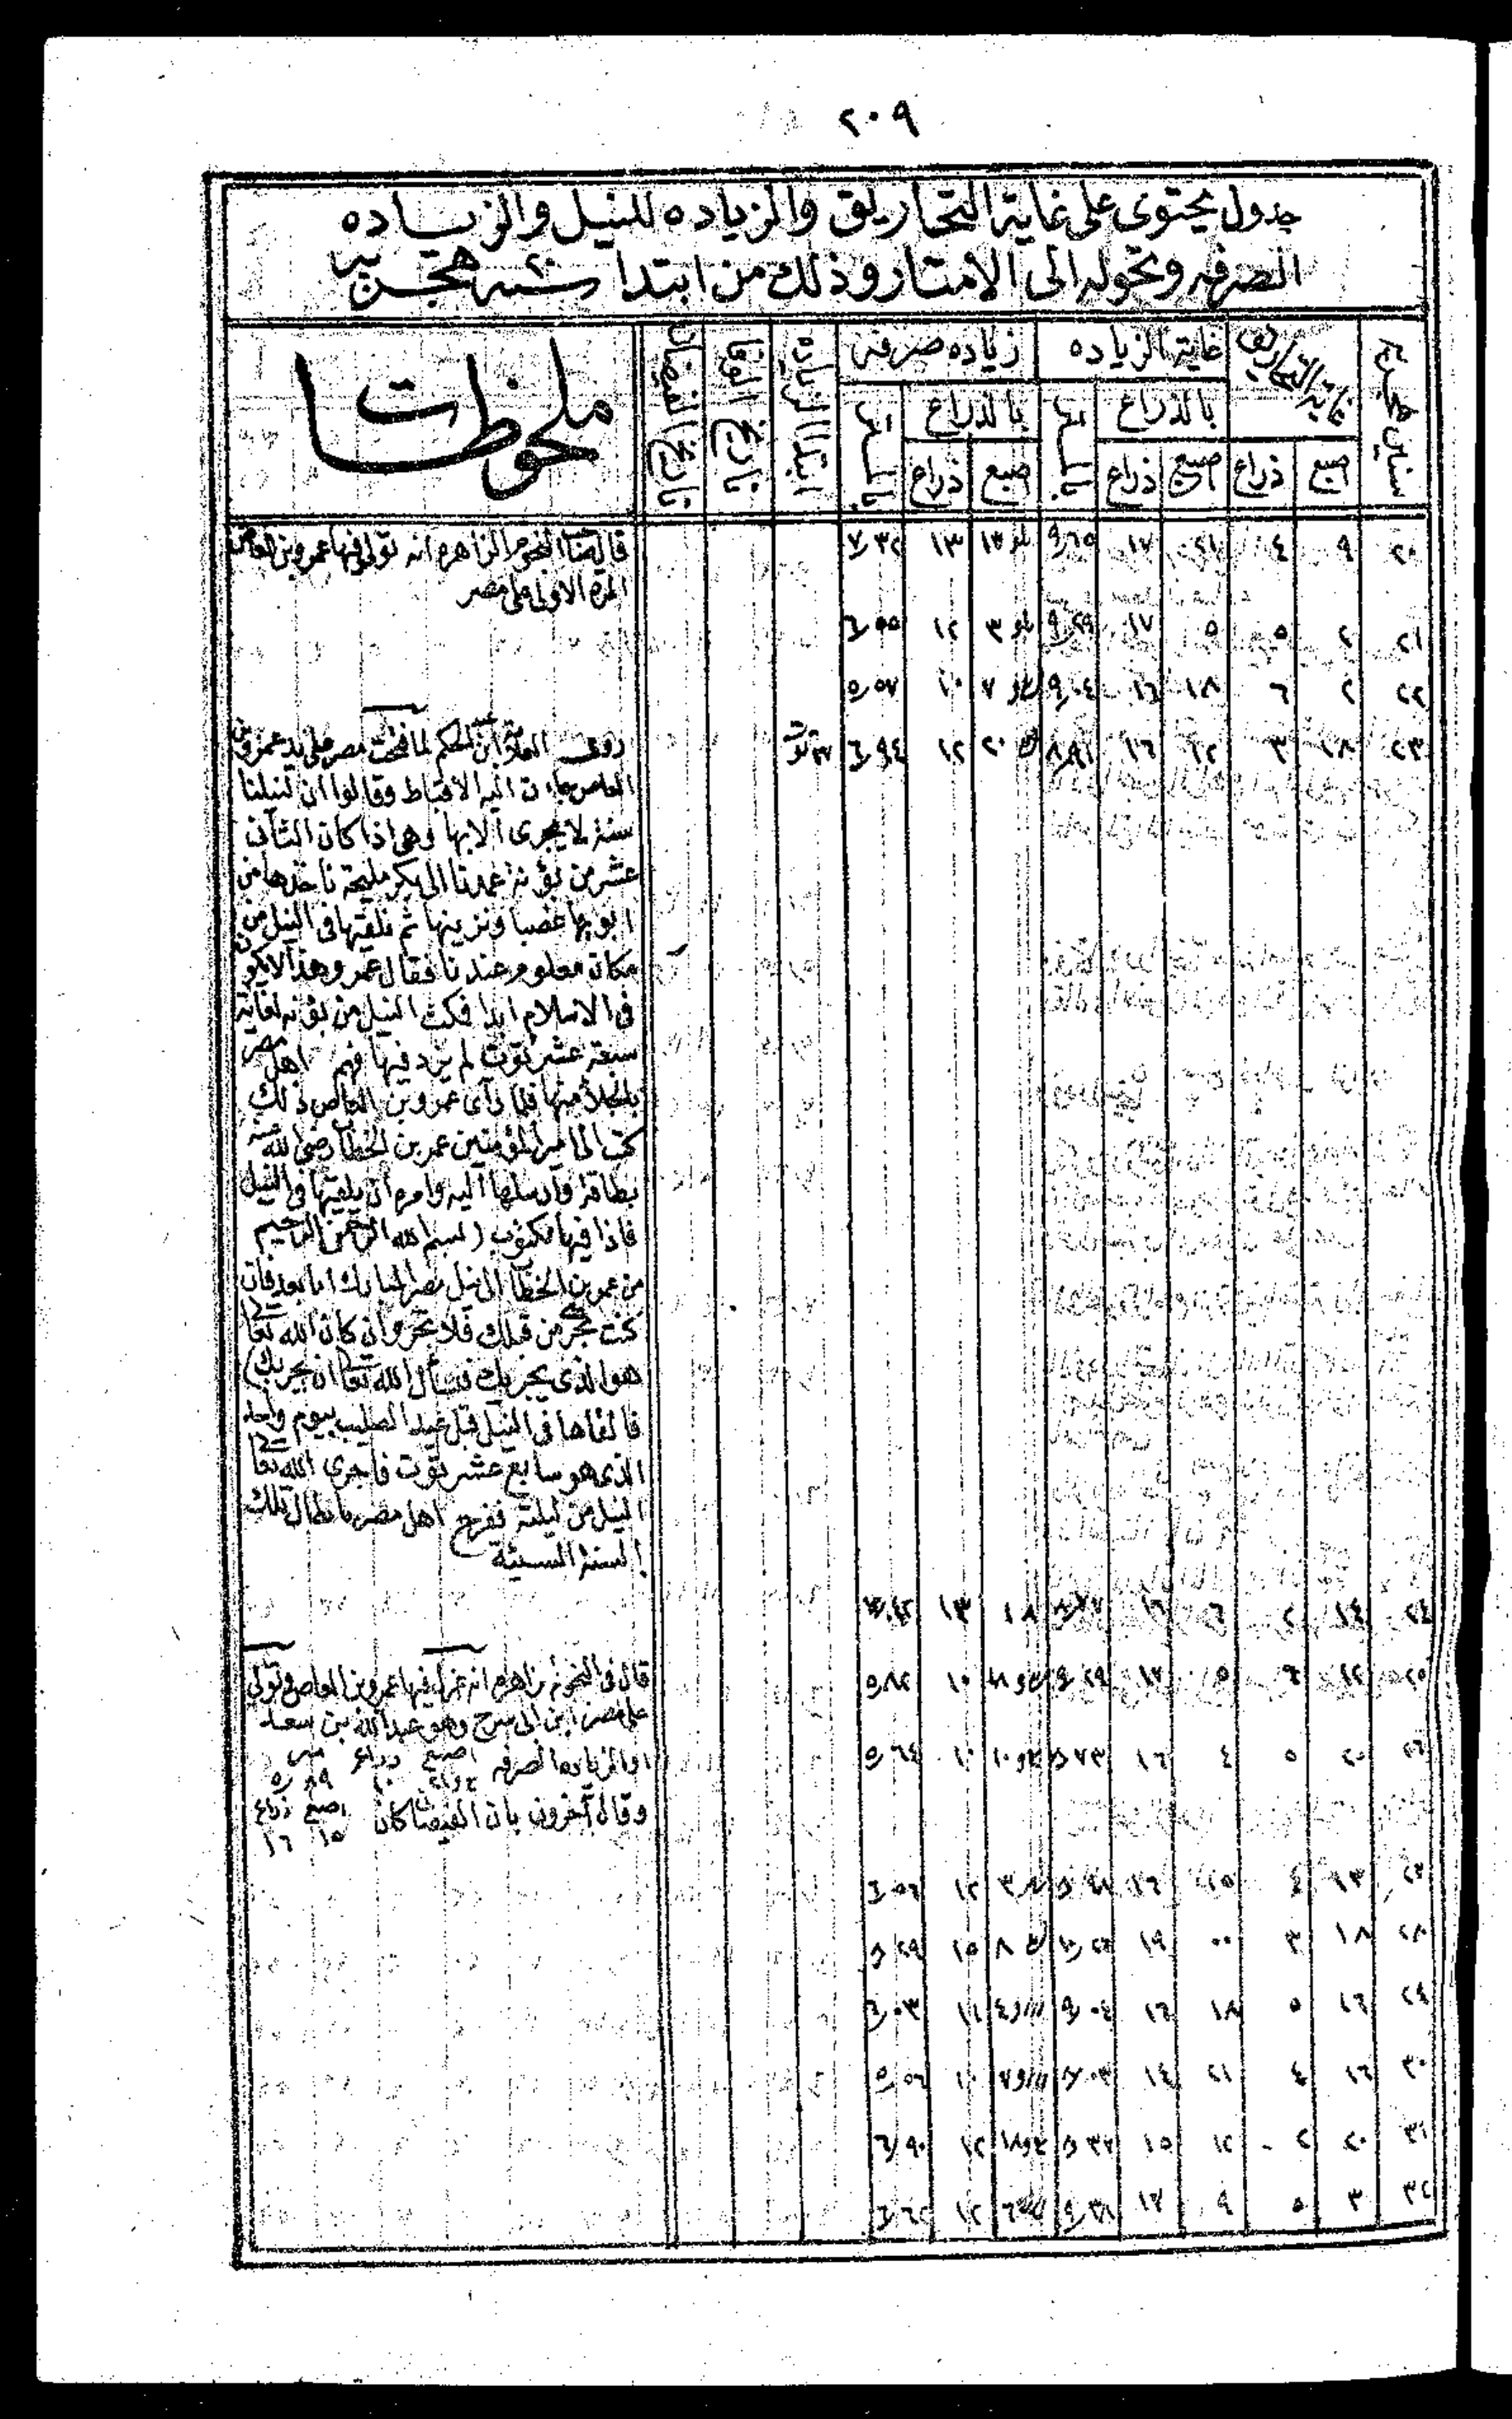 ٢٠٩
جدول يحتوى على غاية التحاريق والزياده للنيل والزياده
الصرفه وتحوله الى الامتار وذلك من ابتدا سنة ٢٠ هجريه
سنين هجريه غاية التحاريق غاية الزياده زياده صرفه ابتدا الزياده تاريخ الوفا تاريخ الفيضان ملحوظات
بالذراع بالذراع
اصبع ذراع اصبع ذراع اصبع ذراع
٢٠ ٩ ٤ ٢١ ١٧ ٩٫٦٥ ١٣ ٧٫٣٢
قال النجوم الزاهره انه تولى فيها عمرو بن العاص
المره الاولى على مصر
٢١ ٢ ٥ ٥ ١٧ ٩٫٢٩ ٣ ١٢ ٦٫٥٥
٢٢ ٢ ٦ ١٨ ١٦ ٩٫٠٤ ٧ ١٠ ٥٫٥٧
٢٣ ١٨ ٣ ١٢ ١٦ ٨٫٩١ ٢٠ ١٢ ٦٫٩٤
روى ابن عبد الحكم لما فتحت مصر على يد عمرو بن
العاص جاءت اليه الاقباط وقالوا ان لنيلنا
سنة لا يجرى الا بها وهى اذا كان الثانى
عشر من بؤنه عمدنا الى بكر مليحة ناخذها من
ابويها غصبا ونزينها ثم نلقيها فى النيل من
مكان معلوم عندنا فقال عمرو هذا لا يكون
فى الاسلام ابدا فمكث النيل من بؤنه لغاية
سبعة عشر توت لم يزد فيها فهم اهل مصر
بالجلا منها فلما رآى عمرو بن العاص ذلك
كتب الى امير المؤمنين عمر بن الخطاب رضى الله عنه
بطاقة وارسلها اليه وامره ان يلقيها فى النيل
فاذا فيها مكتوب (بسم الله الرحمن الرحيم
من عمر بن الخطاب الى نيل مصر المبارك اما بعد فان
كنت تجرى من قبلك فلا تجر وان كان الله تعالى
هو الذى يجريك فنسأل الله تعالى ان يجريك)
فالقاها فى النيل قبل عيد الصليب بيوم واحد
الذى هو سابع عشر توت فاجرى الله تعالى
النيل من ليلته ففرح اهل مصر بابطال تلك
السنة السيئة
٢٤ ١٤ ٢ ٦ ١٦ ١٨ ١٣
٢٥ ١٢ ٦ ٥ ١٧ ٩٫٢٩ ١٠ ٥٫٨٢
قال فى النجوم زاهره انه عزل فيها عمرو بن العاص وتولى
على مصر ابن ابى سرح وهو عبدالله بن سعد
٢٦ ٢٠ ٥ ٤ ١٦ ٨٫٧٣ ١٠ ٥٫٦٤
او الزياده الصرفه اصبع ذراع متر
١٠ ٥٫٨٩
وقال آخرون بان الفيضان كان اصبع ذراع
١٥ ١٦
٢٧ ١٣ ٤ ١٥ ١٦ ٣ ١٢ ٦٫٥٦
٢٨ ١٨ ٣ ٠٠ ١٩ ٨ ١٥ ٨٫٢٩
٢٩ ١٦ ٥ ١٨ ١٦ ٩٫٠٤ ٤ ١١ ٦٫٠٣
٣٠ ١٦ ٤ ٢١ ١٤ ٨٫٠٣ ٧ ١٠ ٥٫٥٦
٣١ ٢٠ ٢ ١٢ ١٥ ٨٫٣٧ ١٨ ١٢ ٦٫٩٠
٣٢ ٣ ٥ ٩ ١٧ ٩٫٣٨ ٦ ١٢ ٦٫٦٢